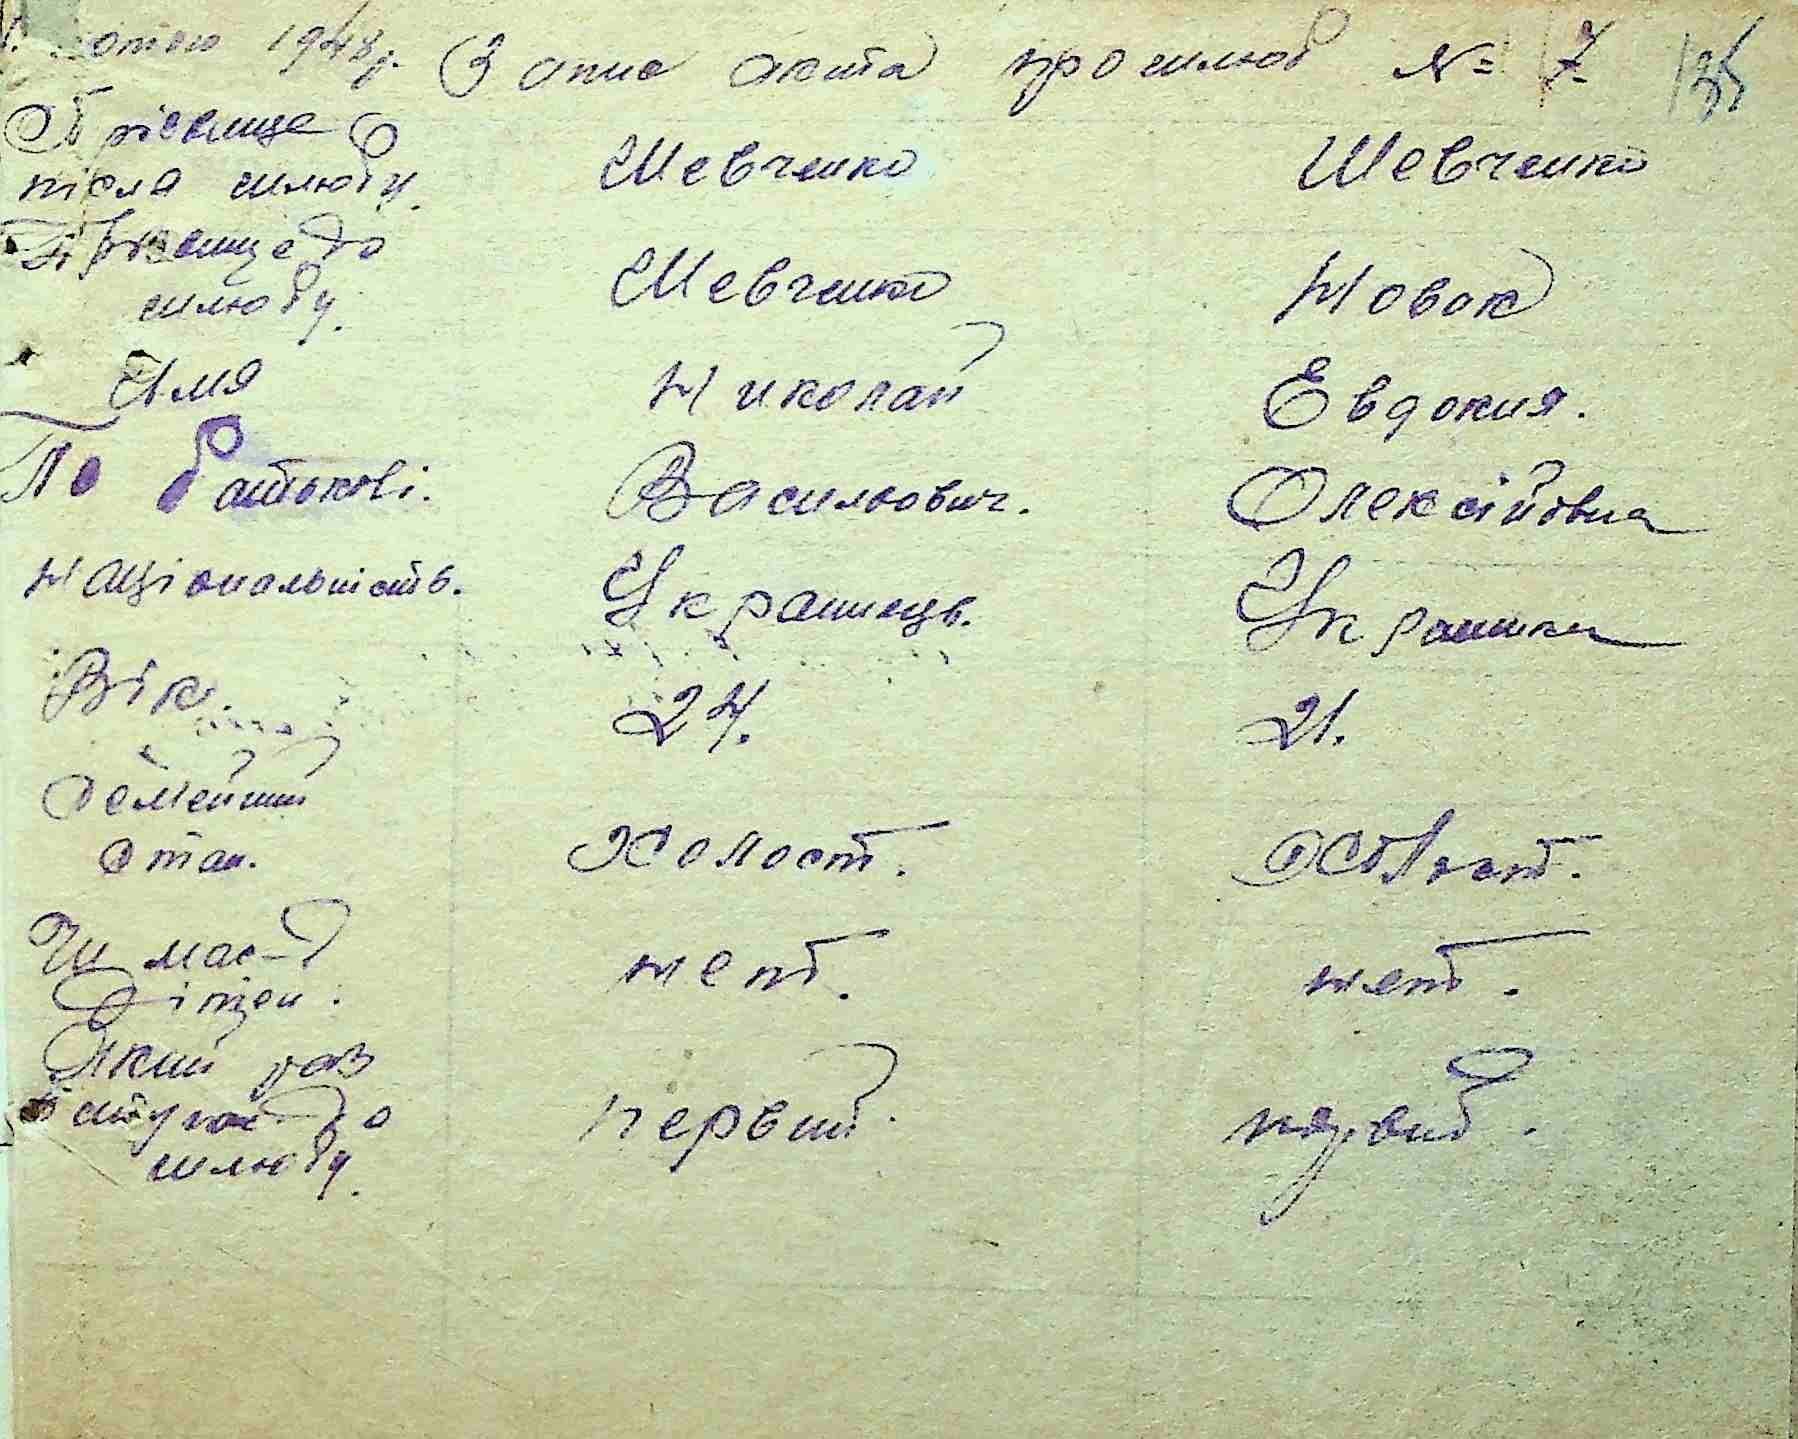 1948р. Запис акта про шлюб № 7
Прізвище
після шлюбу. Шевченко Шевченко
Прізвище до
шлюбу. Шевченко Новак
Імя Николай Евдокия.
По батькові. Васильович. Олексійовна
Національність. Українець. Українка
Вік. 24. 21.
Семейний
стан. Холост.
Чи має
дітей. нет. нет.
Який раз
вступає до
шлюбу. первий. первий.